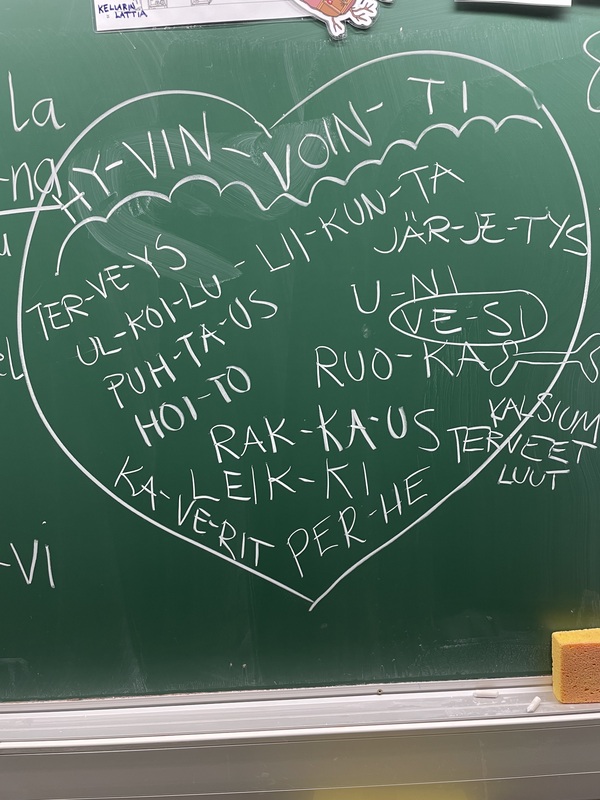 KELLARIN
LATTIA
la
-na
HY-VIN-VOIN-TI
TER-VE-YS
UL-KOI-LU-LII-KUN-TA
JÄR-JE-TYS
PUH-TA-US
HOI-TO
U-NI
VE-SI
RUO-KA
KALSIUM
TERVEET
LUUT
RAK-KA-US
LEIK-KI
KA-VE-RIT
PER-HE
-Vi